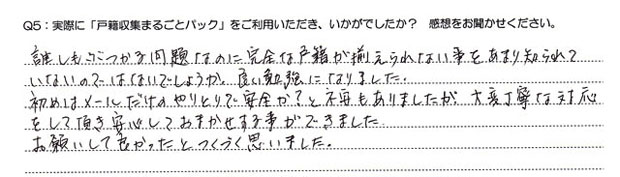 Q5：実際に「戸籍収集まるごとパック」をご利用いただき、いかがでしたか？ 感想をお聞かせください。
誰しもぶつかる問題なのに完全な戸籍が揃えられない事をあまり知られて
いないのではないでしょうか。良い勉強になりました。
初めはメールだけのやりとりで安全か？と不安もありましたが、大変丁寧な対応
をして頂き安心しておまかせする事ができました。
お願いして良かったとつくづく思いました。